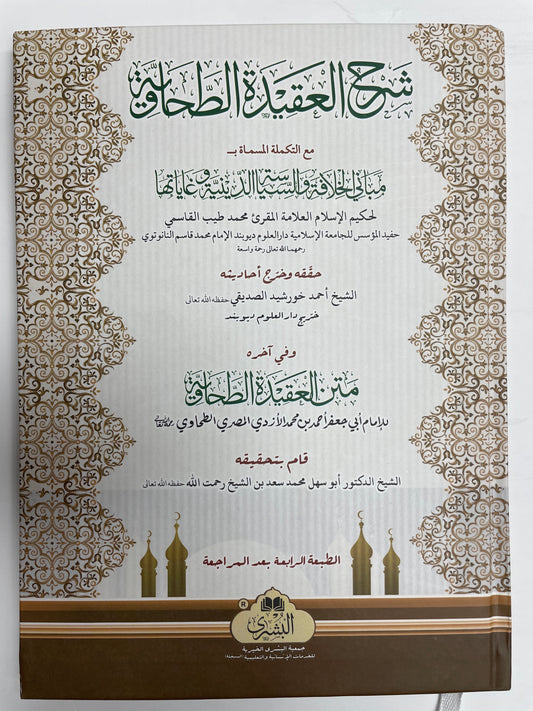 شرح العقيدة الطحاوية
مع التكملة المسماة بـ
مباني الخلافة والسياسة الدينية وغاياتها
لحكيم الإسلام العلامة المقرئ محمد طيب القاسمي
حفيد المؤسس للجامعة الإسلامية دارالعلوم ديوبند الإمام محمد قاسم النانوتوي
رحمهما الله تعالى رحمة واسعة
حققه وخرج أحاديثه
الشيخ أحمد خورشيد الصديقي حفظه الله تعالى
خريج دارالعلوم ديوبند
وفي آخره
متن العقيدة الطحاوية
للإمام أبي جعفر أحمد بن محمد الأزدي المصري الطحاوي
قام بتحقيقه
الشيخ الدكتور أبو سهل محمد سعد بن الشيخ رحمت الله حفظه الله تعالى
الطبعة الرابعة بعد المراجعة
®
البشرى
جمعية البشرى الخيرية
للخدمات الإنسانية والتعليمية (المسجلة)